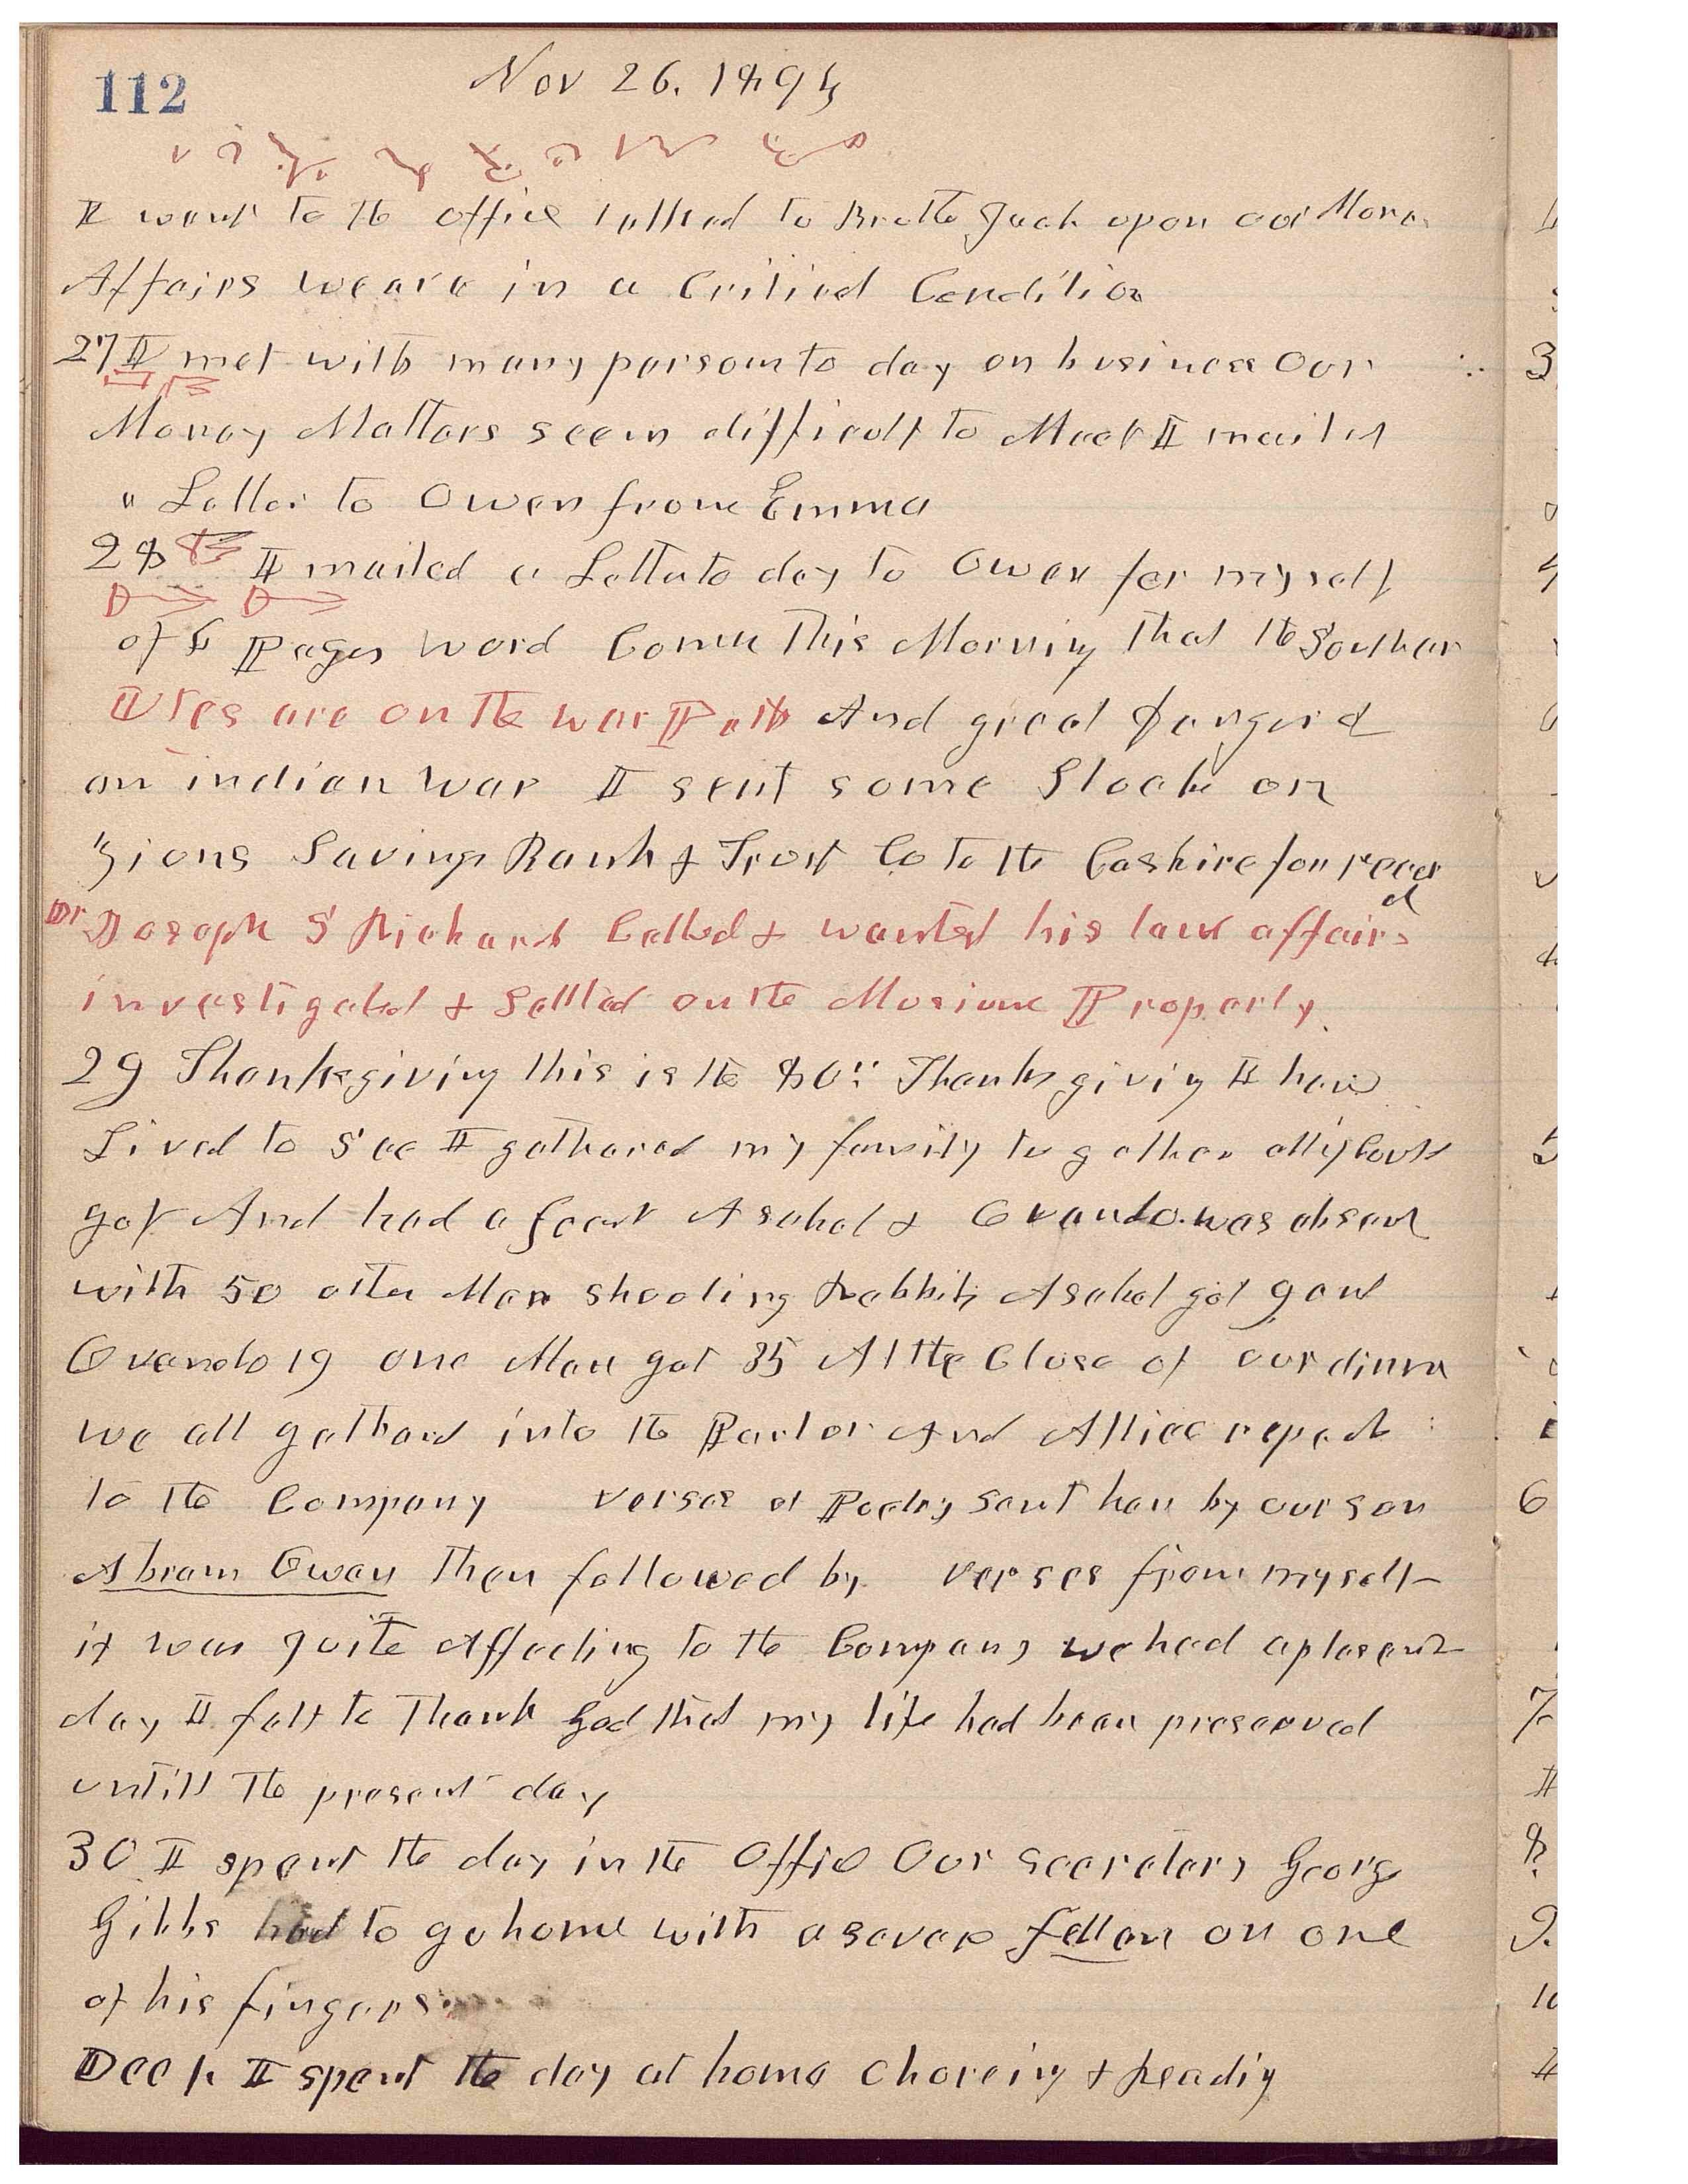 112
Nov 26. 1894
I went to the office talked to Brother Jack upon our Money
Affairs we are in a Critical Condition
27 I met with many persons to day on business Our
Money Matters seem difficult to Meet I mailed
a Letter to Owen from Emma
28 I mailed a Letter to day to Owen for myself
of Pages word Come This Morning that the Southern
Utes are on the war Path And great danger of
an indian war I sent some Stock on
Zions Savings Bank & Trust Co to the Cashire for record
Dr Joseph S Richards Called & wanted his law affairs
investigated & Settled on the Musium Property.
29 Thanksgiving this is the 80" Thanksgiving I have
Lived to See I gathered my family together all I could
get And had a feast Asahel & Ovando was absent
with 50 other Men shooting Rabbits Asahel got 9 and
Ovando 19 one Man got 35 At the Close of our dinner
we all gathered into the Parlor And Allice repeated
to the Company verses of Poetry sent her by our son
Abram Owen then followed by verses from myself
it was quite Affecting to the Company we had a plasent
day I felt to Thank God that my life had been preserved
untill the present day
30 I spent the day in the Office Our Secretary George
Gibbs had to go home with a severe fellan on one
of his fingers.
Dec 1. I spent the day at home Choreing & Reading